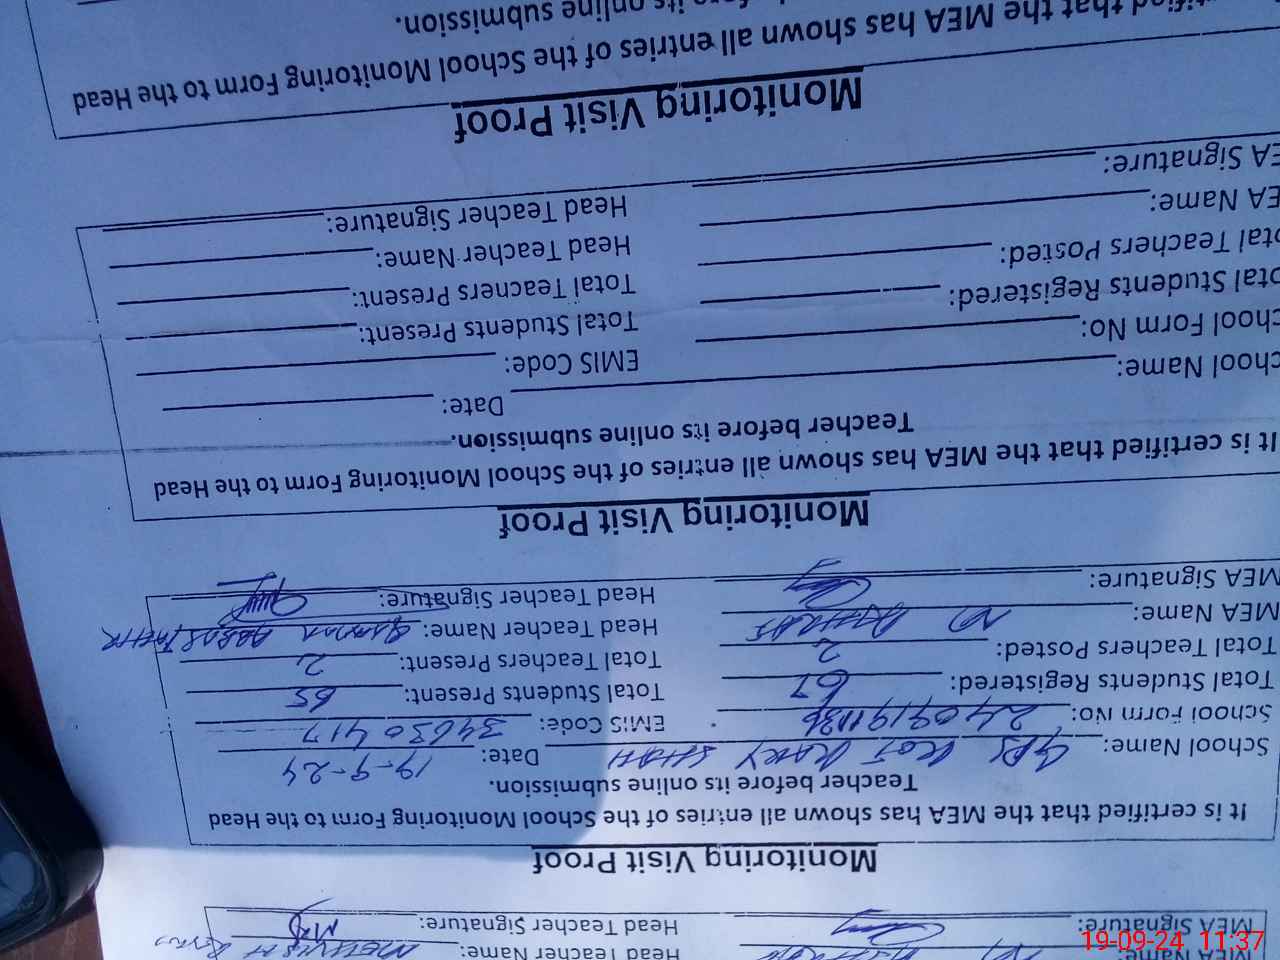 MEA Name: Head Teacher Name:
MEA Signature: Head Teacher Signature:
Monitoring Visit Proof
It is certified that the MEA has shown all entries of the School Monitoring Form to the Head
Teacher before its online submission.
School Name: GPS KOT KAKY SHAH Date: 19-9-24
School Form No: EMIS Code: 34630417
Total Students Registered: 67 Total Students Present: 65
Total Teachers Posted: 2 Total Teachers Present: 2
MEA Name: Head Teacher Name: ABBAS TAHIR
MEA Signature: Head Teacher Signature:
Monitoring Visit Proof
It is certified that the MEA has shown all entries of the School Monitoring Form to the Head
Teacher before its online submission.
chool Name: Date:
chool Form No: EMIS Code:
otal Students Registered: Total Students Present:
otal Teachers Posted: Total Teachers Present:
EA Name: Head Teacher Name:
EA Signature: Head Teacher Signature:
Monitoring Visit Proof
rtified that the MEA has shown all entries of the School Monitoring Form to the Head
before its online submission.
19-09-24 11:37